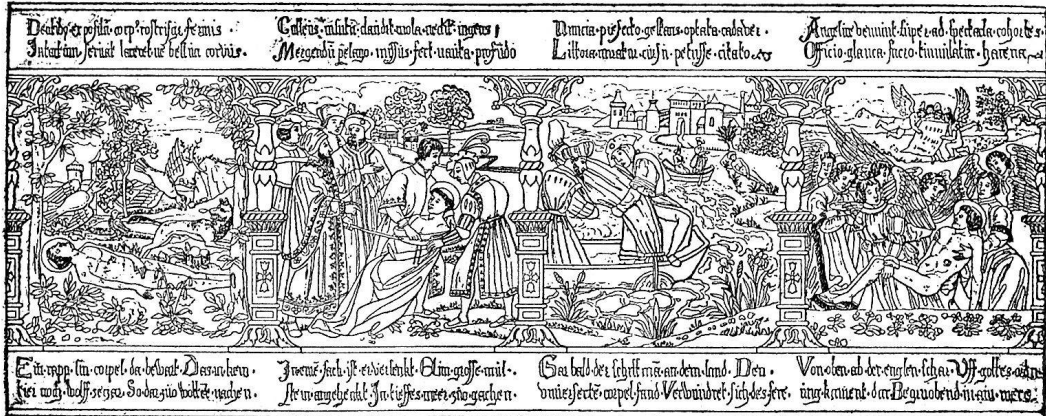 Dentibꝯ expositū corpꝯ rostrisqꝫ ferinis
Intactum servat laceretve bellua corvus
insutū claudit mola nectitᷣ ingens
Mergendū pelago missus fert nauta profūdo
Nuncia prefecto gestans optata cadaver
Littora cursu petiisse citato
Angelice veniunt super ad spectāda cohortes
Officio glauca sacro tumulatur harena
Ein rapp sin corpel da bewart Das in kein
tier noch wolff So das zuo woltēt nachen
In eine sach ist er versenkt Ein grosse mul
stein angehenkt In tieffes meer gachen
Gar bald der schifmā an dem land Den
unverserte corpel fand Verwundret sich des sere
Von oben ab der englen schar Uff gottes ordn
ung kament dar Begruobend in